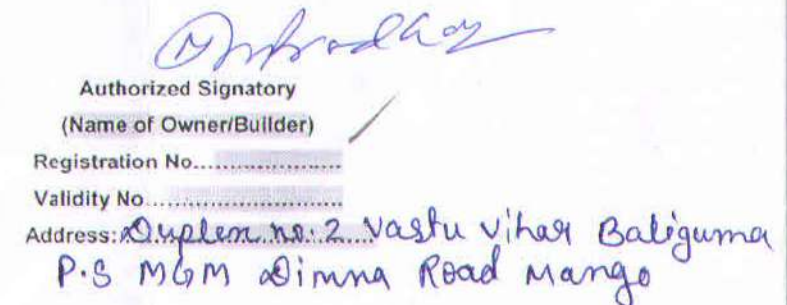 Authorized Signatory
(Name of Owner/Builder)
Registration No......................
Validity No............................
Address: Duplex no. 2 Vastu Vihar Baliguma
P.S MGM Dimna Road Mango